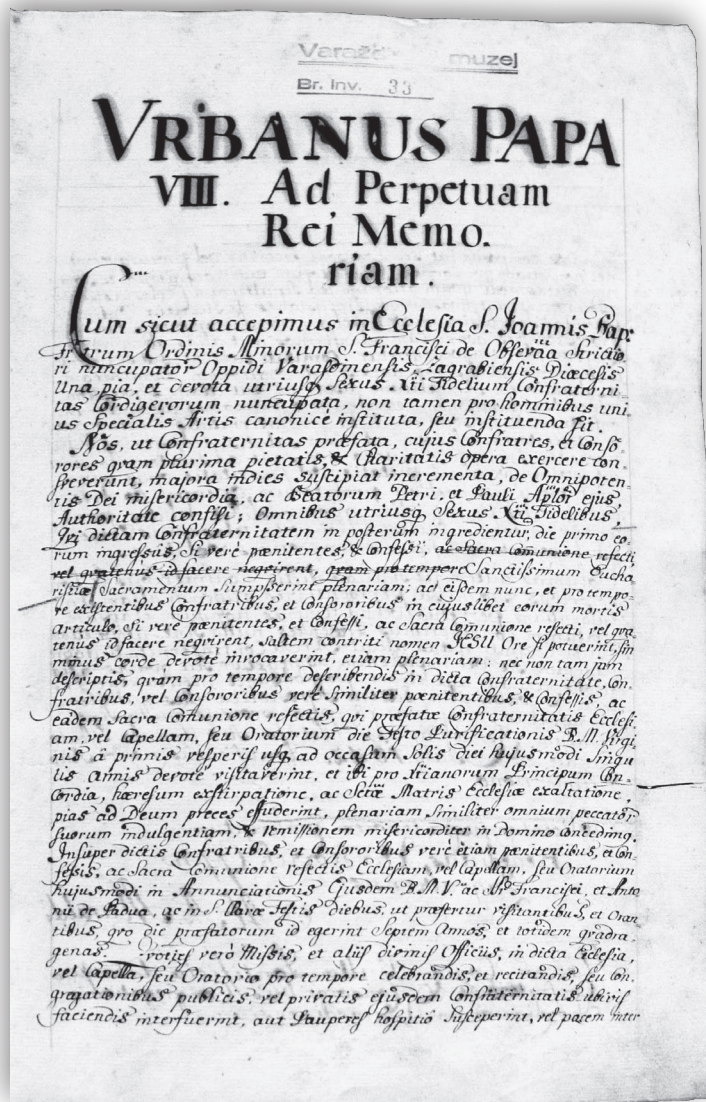 Varažd muzej
Br. Inv. 33
VRBANUS PAPA
VIII. Ad Perpetuam
Rei Memo.
riam.
Cum sicut accepimus in Ecclesia S. Joannis Bap:
Fratrum Ordinis Minorum S. Francisci de Observãa Strictio
ri nuncupator Oppidi Varasdinensis Zagrabiensis Diæcesis
Una pia, et devota utriusq Sexus Xti Fidelium Confraterni
tas Cordigerorum nuncupata, non tamen pro hominibus uni
us Specialis Artis canonicè instituta, seu instituenda sit.
Nos, ut Confraternitas præfata, cujus Confratres, et Conso
rores qram plurima pietatis, & Charitatis opera exercere con
sveverunt, majora indies suscipiat incrementa, de Omnipoten
tis Dei misericordia, ac Beatorum Petri, et Pauli Aplor ejus
Authoritate confisi; Omnibus utriusq Sexus Xti Fidelibus,
Qvi dictam Confraternitatem in posterum ingredientur, die primo eo
rum ingressus, Si verè pænitentes, & Confessi, ac Sacra Comunione refecti,
vel qratenus id facere neqvirent, qram pro tempore Sanctissimum Eucha
ristiæ Sacramentum Sumpserint plenariam; ac eisdem nunc, et pro tempo
re existentibus Confratribus, et Consororibus in cujuslibet eorum mortis
Articulo, Si verè pænitentes, et Confessi, ac Sacra Comunione refecti, vel qra
tenus id facere neqvirent, saltem contriti nomen JESU Ore si potuerint, sin
minus corde devotè invocaverint, etiam plenariam: nec non tam jam
descriptis, qram pro tempore describendis in dicta Confraternitate, Con
fratribus, vel Consororibus verè Similiter pænitentibus, & Confessis, ac
eadem Sacra Comunione refectis, qvi præfatæ Confraternitatis Ecclesi
am, vel Capellam, seu Oratorium die Festo Purificationis B.M. Virgi
nis â primis vesperis usq ad occasum Solis diei hujusmodi Singu
lis Annis devotè visitaverint, et ibi pro Xtianorum Principum Con
cordia, hæresum exstirpatione, ac Sctæ Matris Ecclesiæ exaltatione,
pias ad Deum preces effuderint, plenariam Similiter omnium peccator
suorum indulgentiam, & remissionem misericorditer in Domino concedimq.
Insuper dictis Confratribus, et Consororibus verè etiam pænitentibus, et Con
fessis, ac Sacra Comunione refectis Ecclesiam, vel Capellam, seu Oratorium
hujusmodi in Annunciationis Ejusdem B.M.V. ac Francisci, et Anto
nii de Padua, ac in S. Claræ Festis diebus, ut præfertur visitantibus, et Oran
tibus, qvo die præfatorum id egerint Septem Annos, et totidem qradra
genas. Qvoties verò Missis, et aliis divinis Officiis, in dicta Ecclesia,
vel Capella, seu Oratorio pro tempore celebrandis, et recitandis, seu Con
gregationibus publicis, vel privatis ejusdem Confraternitatis ubivis
faciendis interfuerint, aut Pauperes hospitiô Susceperint, vel pacem inter